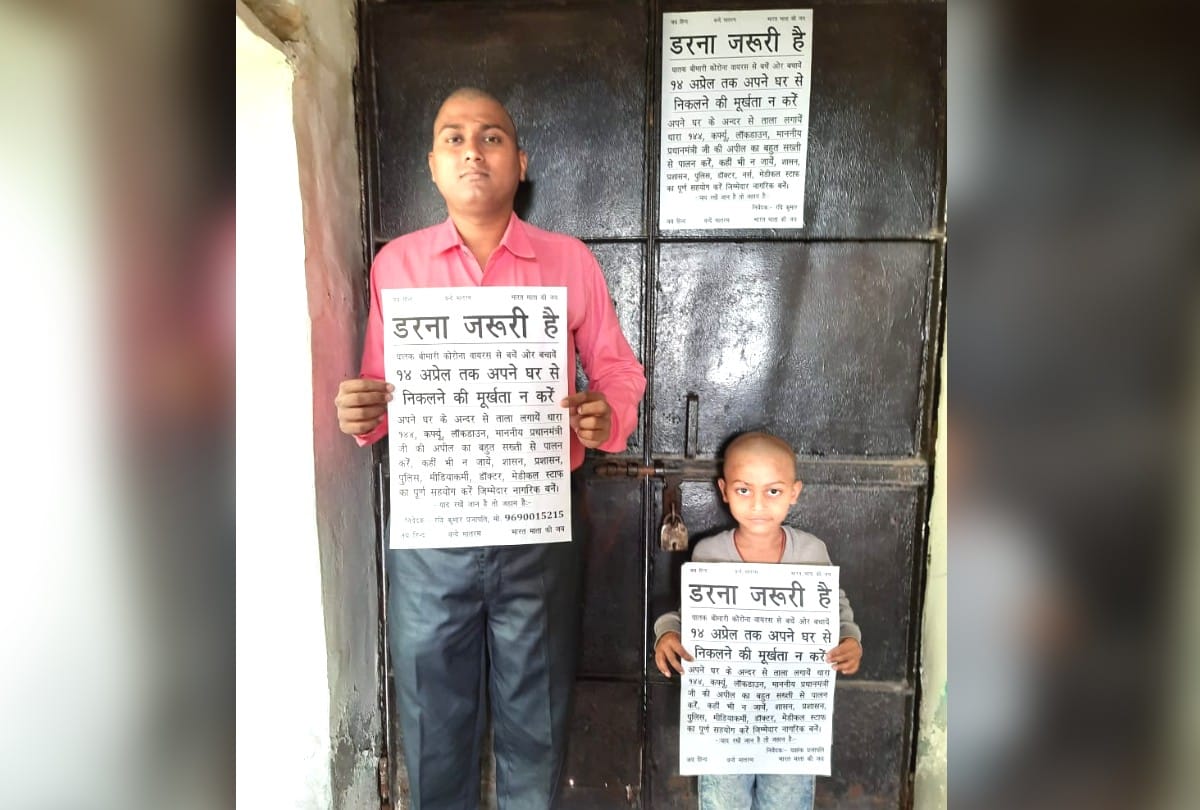 जय हिन्द वन्दे मातरम भारत माता की जय
डरना जरूरी है
घातक बीमारी कोरोना वायरस से बचें ओर बचावें
१४ अप्रेल तक अपने घर से
निकलने की मूर्खता न करें
अपने घर के अन्दर से ताला लगायें
धारा १४४, कर्फ्यू, लॉकडाउन, माननीय
प्रधानमंत्री जी की अपील का बहुत सख्ती
से पालन करें, कहीं भी न जायें, शासन,
प्रशासन, पुलिस, डॉक्टर, नर्स, मेडीकल स्टाफ
का पूर्ण सहयोग करें जिम्मेदार नागरिक बनें।
-याद रखें जान है तो जहान है-
निवेदक:- रवि कुमार
जय हिन्द वन्दे मातरम भारत माता की जय
जय हिन्द वन्दे मातरम भारत माता की जय
डरना जरूरी है
घातक बीमारी कोरोना वायरस से बचें ओर बचावें
१४ अप्रेल तक अपने घर से
निकलने की मूर्खता न करें
अपने घर के अन्दर से ताला लगायें धारा
१४४, कर्फ्यू, लॉकडाउन, माननीय प्रधानमंत्री
जी की अपील का बहुत सख्ती से पालन
करें, कहीं भी न जायें, शासन, प्रशासन,
पुलिस, मीडियाकर्मी, डॉक्टर, मेडीकल स्टाफ
का पूर्ण सहयोग करें जिम्मेदार नागरिक बनें।
-याद रखें जान है तो जहान है:-
निवेदक:- रवि कुमार प्रजापति, मो. 9690015215
जय हिन्द वन्दे मातरम भारत माता की जय
जय हिन्द वन्दे मातरम भारत माता की जय
डरना जरूरी है
घातक बीमारी कोरोना वायरस से बचें ओर बचावें
१४ अप्रेल तक अपने घर से
निकलने की मूर्खता न करें
अपने घर के अन्दर से ताला लगायें धारा
१४४, कर्फ्यू, लॉकडाउन, माननीय प्रधानमंत्री
जी की अपील का बहुत सख्ती से पालन
करें, कहीं भी न जायें, शासन, प्रशासन,
पुलिस, मीडियाकर्मी, डॉक्टर, मेडीकल स्टाफ
का पूर्ण सहयोग करें जिम्मेदार नागरिक बनें।
-याद रखें जान है तो जहान है:-
निवेदक:- प्रजापति
जय हिन्द वन्दे मातरम भारत माता की जय